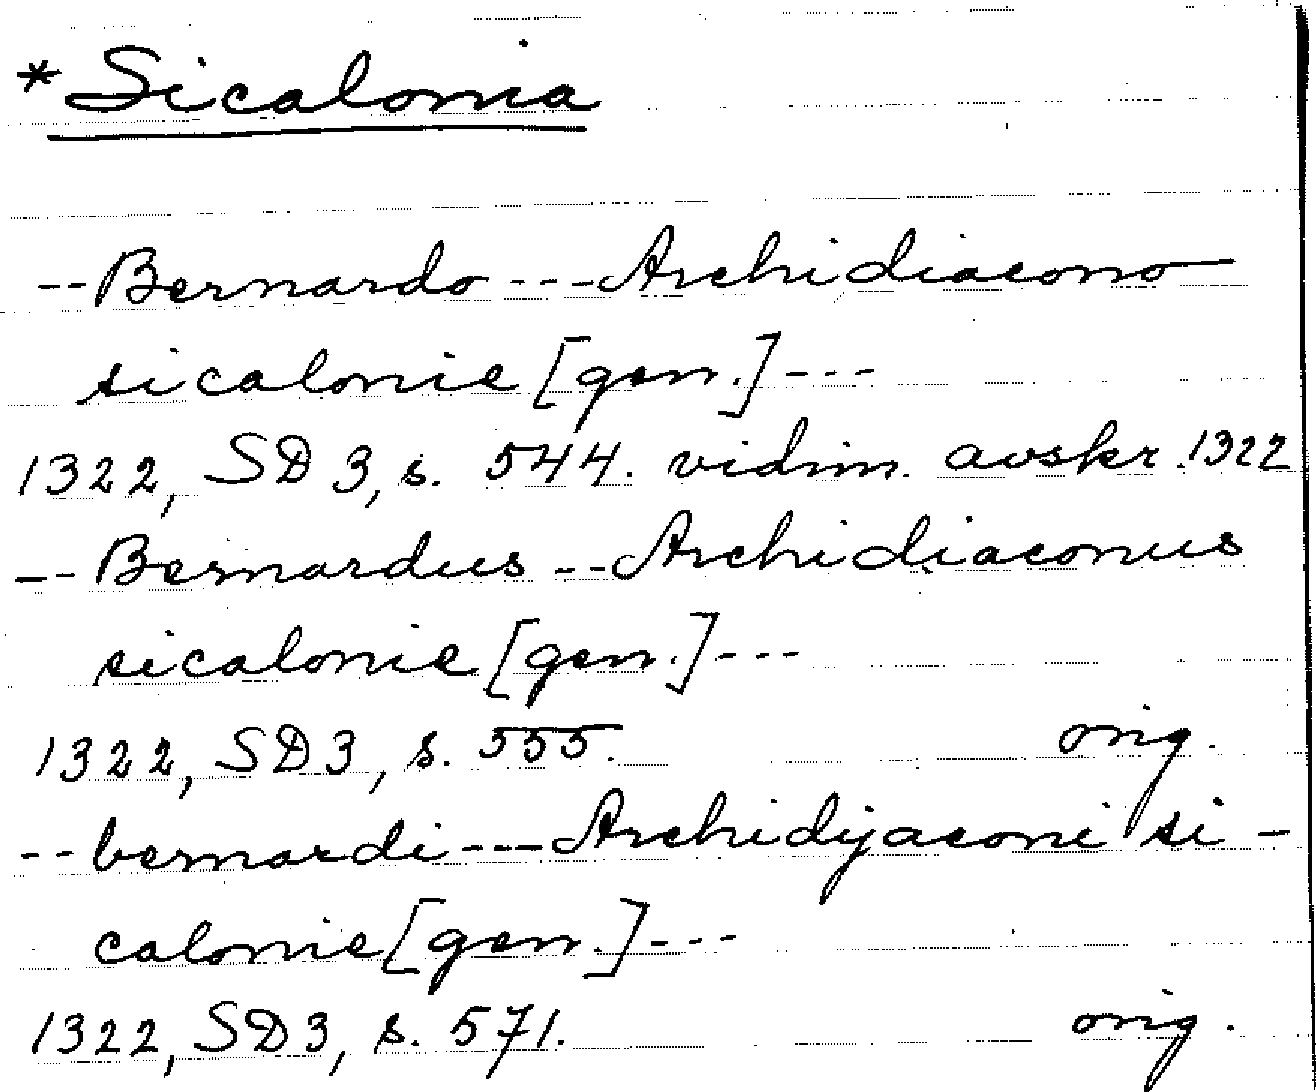 *Sicalonia
--Bernardo---Archidiacono
sicalonie [gen.]---
1322, SD 3, s. 544. vidim. avskr. 1322
--Bernardus--Archidiaconus
sicalonie [gen.]---
1322, SD 3, s. 555. orig.
--bernardi---Archidyaconi si-
calonie [gen.]---
1322, SD 3, s. 571. orig.